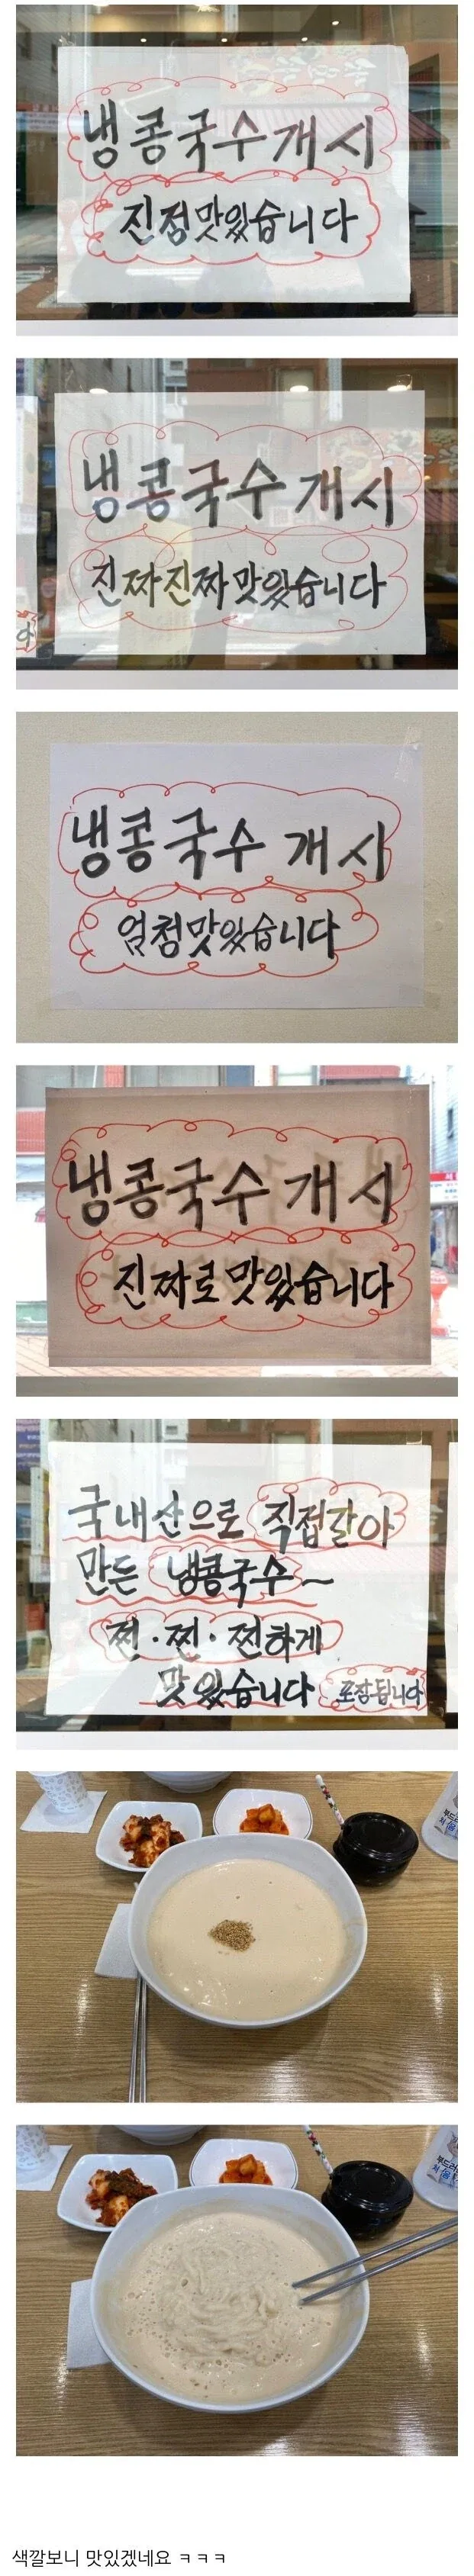 냉콩국수개시
진정맛있습니다
냉콩국수개시
진짜진짜맛있습니다
냉콩국수 개시
엄청맛있습니다
냉콩국수개시
진짜로맛있습니다
국내산으로 직접갈아
만든 냉콩국수~
쩐·찐·찐하게
맛있습니다 포장됩니다
색깔보니 맛있겠네요 ㅋㅋㅋ